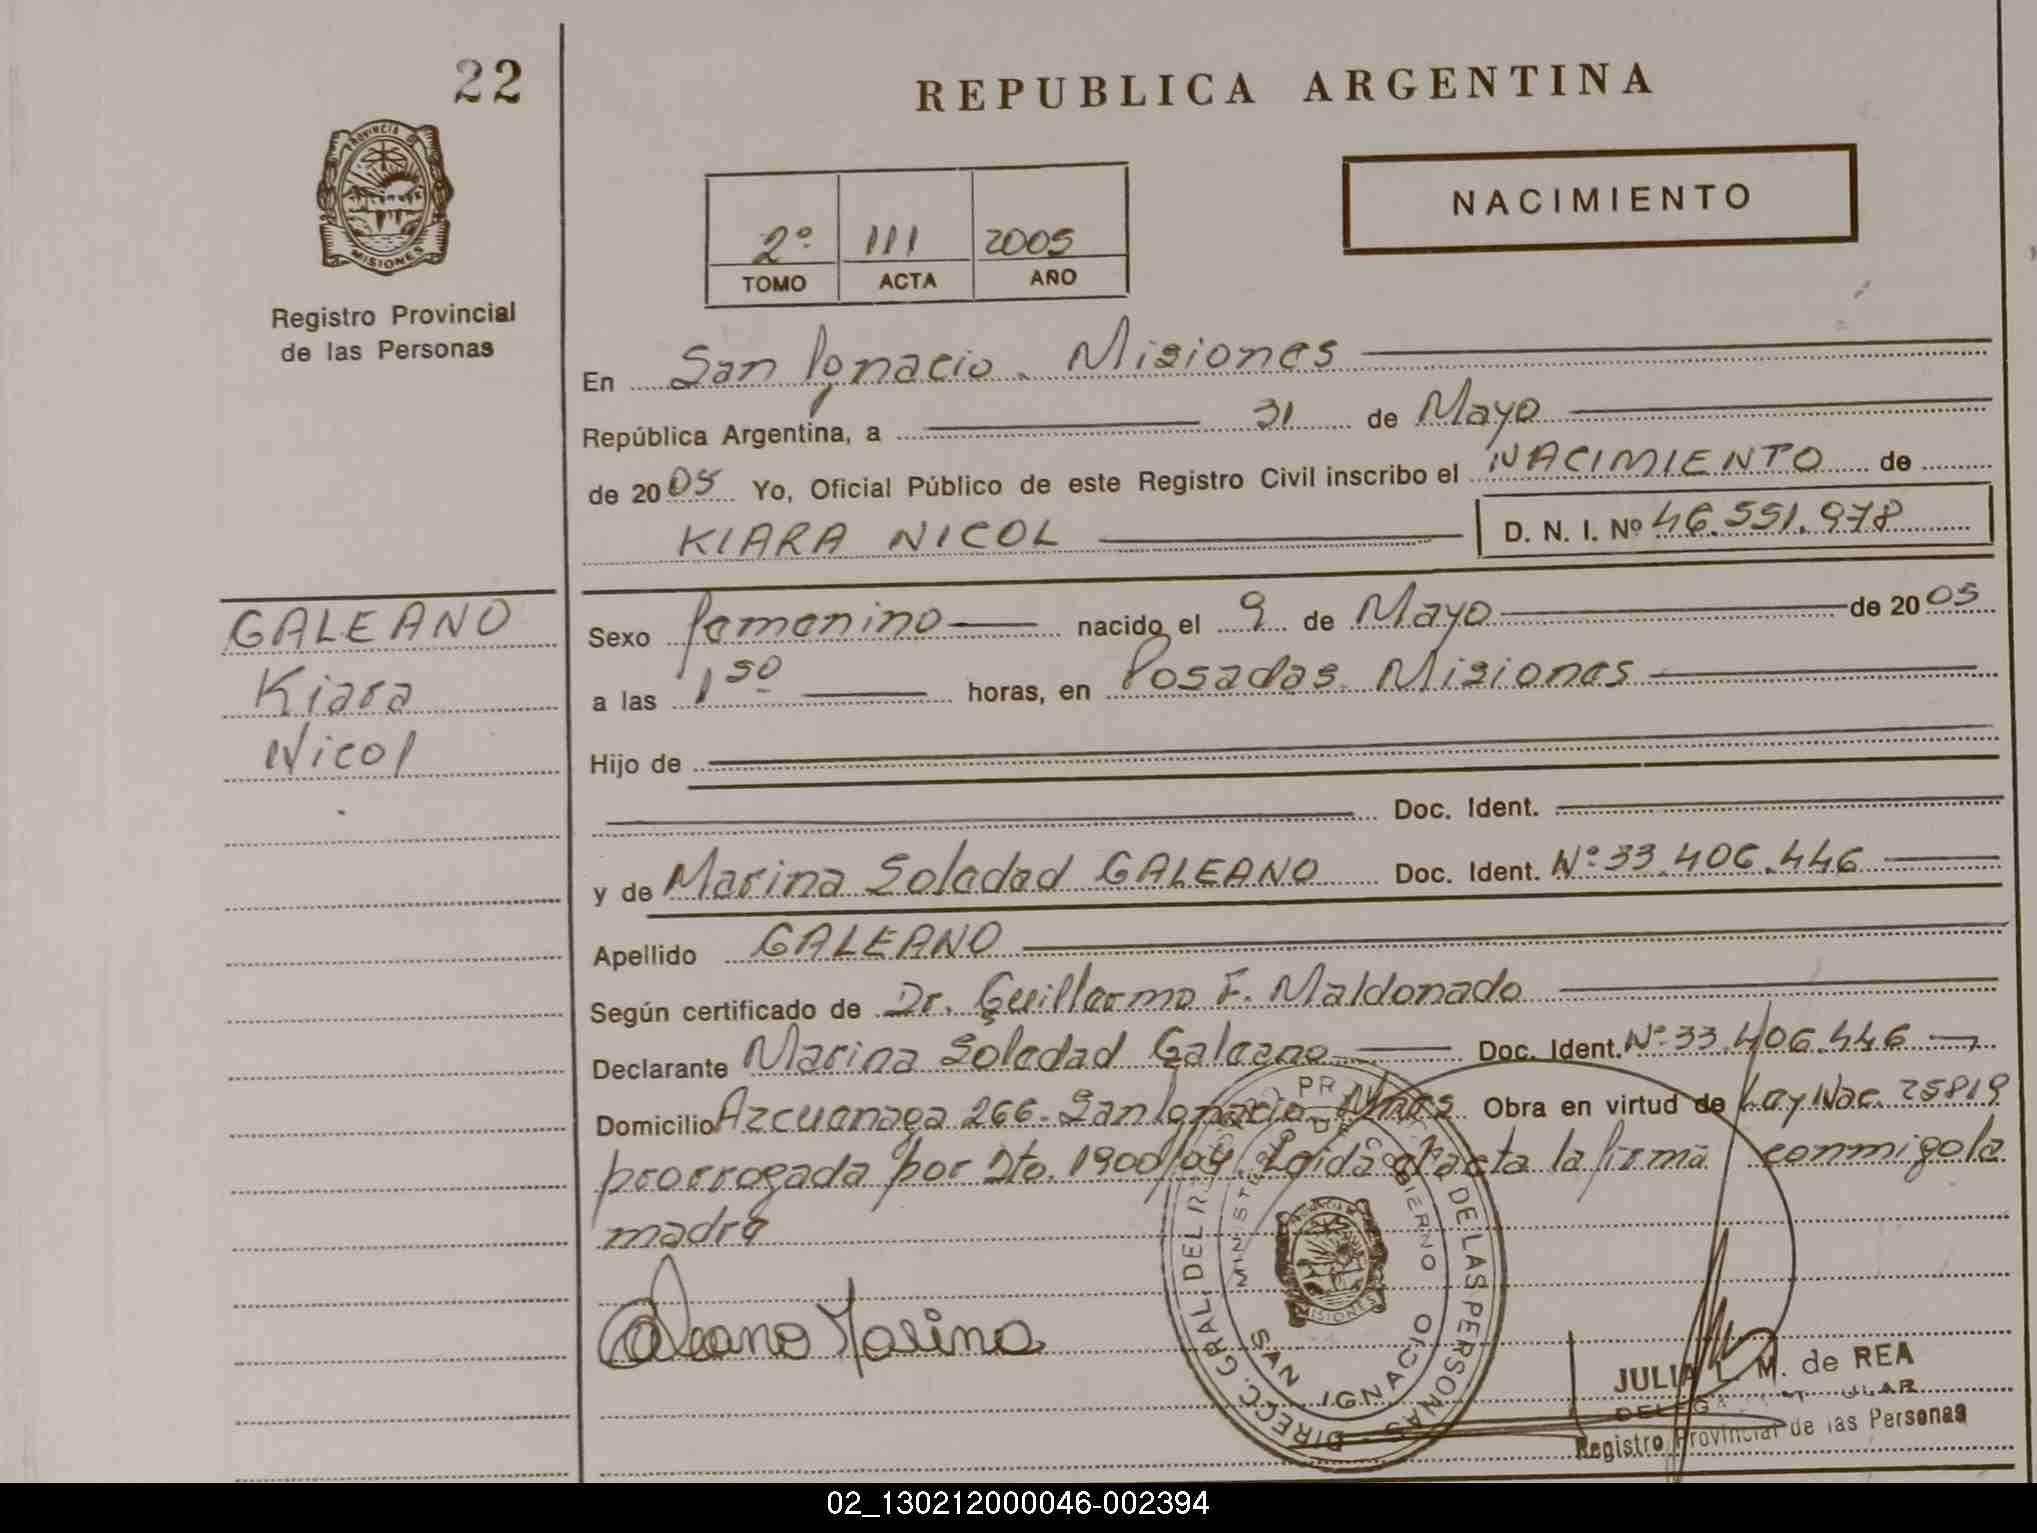 22
REPUBLICA ARGENTINA
PROVINCIA DE
MISIONES
Registro Provincial
de las Personas
NACIMIENTO
2º 111 2005
TOMO ACTA AÑO
En San Ignacio. Misiones
República Argentina, a 31 de Mayo
de 2005 Yo, Oficial Público de este Registro Civil inscribo el NACIMIENTO de
KIARA NICOL D. N. I. Nº 46.551.978
GALEANO
Kiara
Nicol
Sexo femenino nacido el 9 de Mayo de 2005
a las 1 50 horas, en Posadas. Misiones
Hijo de
Doc. Ident.
y de Marina Soledad GALEANO Doc. Ident. Nº 33.406.446
Apellido GALEANO
Según certificado de Dr. Guillermo F. Maldonado
Declarante Marina Soledad Galeano Doc. Ident. Nº 33.406.446
Domicilio Azcuenaga 266. San Ignacio. Mnes Obra en virtud de Ley Nac. 25819
prorrogada por Dto. 1900/04. Leida el acta la firma conmigo la
madre
Galeano Marina
DIRECC. GRAL. DEL DE LAS PERSONAS
MINISTERIO DE GOBIERNO
SAN IGNACIO
MISIONES
JULIA L. M. de REA
Registro Provincial de las Personas
02_130212000046-002394